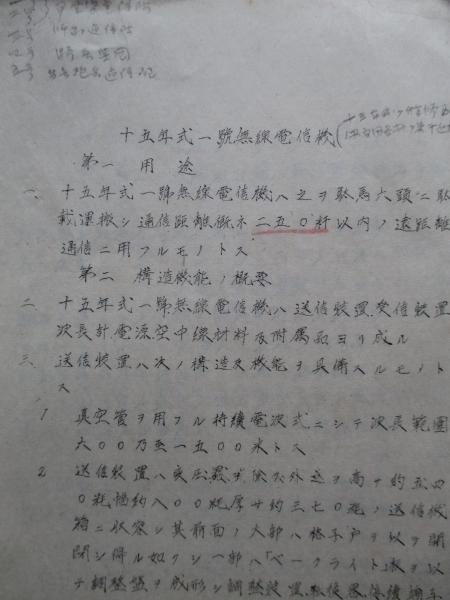 十五年式一號無線電信機
第一 用途
一、十五年式一號無線電信機ハ之ヲ駄馬六頭ニ駄
載運搬シ通信距離概ネ二五〇粁以内ノ遠距離
通信ニ用フルモノトス
第二 構造機能ノ概要
二 十五年式一號無線電信機ハ送信装置、受信装置
波長計、電源、空中線材料及附属品ヨリ成ル
三、送信装置ハ次ノ構造及機能ヲ具備スルモノト
ス
1 真空管ヲ用フル持續電波式ニシテ波長範圍
六〇〇乃至一五〇〇米トス
2 送信装置ハ変圧器ヲ除ク外之ヲ高サ約五四
〇粍幅約八〇〇粍厚サ約三七〇粍ノ送信機
箱ニ収容シ其前面ノ大部ハ格子戸ヲ以テ開
閉シ得ル如クシ一部ハ「ベークライト」板ヲ以
テ調整盤ヲ成形シ調整装置